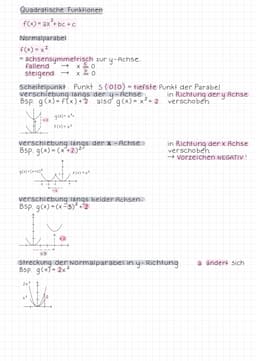 Quadratische Funktionen
f(x) = ax² + bc + c
Normalparabel
f(x) = x²
= achsensymmetrisch zur y-Achse
fallend → x ≤ 0
steigend → x ≥ 0
Scheitelpunkt Punkt S (0|0) = tiefste Punkt der Parabel
Verschiebung längs der y-Achse in Richtung der y Achse
Bsp. g(x) = f(x) + 2 also g(x) = x² + 2 verschoben
Verschiebung längs der x-Achse in Richtung der x Achse
Bsp. g(x) = (x + 2)² verschoben
→ VORZEICHEN NEGATIV!
Verschiebung längs beider Achsen
Bsp. g(x) = (x - 3)² + 2
Streckung der Normalparabel in y-Richtung a ändert sich
Bsp. g(x) = 2x²